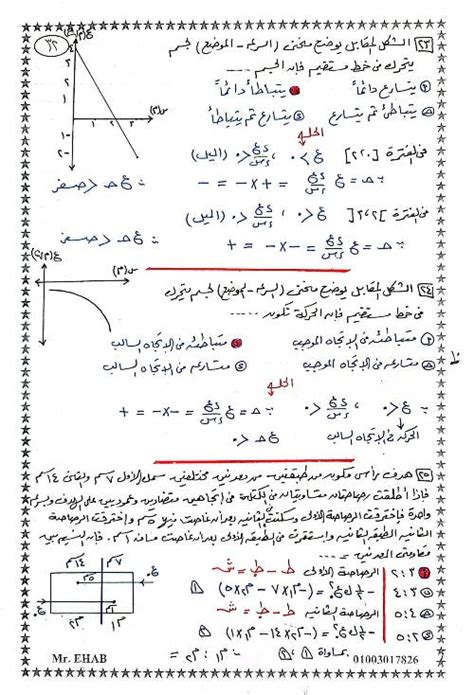 ٣٢
٢٣ الشكل المقابل يوضح منحنى (السرعة - الموضع) لجسم
يتحرك فى خط مستقيم فإن الجسم ----
يتسارع دائماً يتباطأ دائماً
يتباطئ ثم يتسارع يتسارع ثم يتباطأ
الحل
فى الفترة [٢،٠] ع > ٠ ، دع/دس < ٠ (الميل)
∴ حـ = ع دع/دس = + × - = -
∴ ع حـ < صفر
فى الفترة ع < ٠ ، دع/دس < ٠ (الميل)
∴ حـ = ع دع/دس = - × - = +
∴ ع حـ < صفر
٢٤ الشكل المقابل يوضح منحنى (السرعة - الموضع) لجسم يتحرك
فى خط مستقيم فإن الحركة تكون ----
متباطئه فى الإتجاه الموجب متباطئه فى الإتجاه السالب
متسارعه فى الإتجاه الموجب متسارعه فى الإتجاه السالب
الحل
∵ ع < ٠ ، دع/دس < ٠ ∴ حـ = ع دع/دس = - × - = +
الحركة فى الإتجاه السالب ∴ ع حـ < ٠
٢٥ هدف رأسى مكون من طبقتين من معدنين مختلفين سمك الأول ٧سم والثانى ١٤سم
فإذا أطلقت رصاصتان متساويتان فى الكتلة فى إتجاهين متضادين وعموديين على الهدف وبسرعة
واحدة فإخترقت الرصاصة الأولى وسكنت فى الثانيه بعد أن غاصت فيها ٥سم واخترقت الرصاصة
الثانيه الطبقة الثانيه واستقرت فى الطبقه الأولى بعد أن غاصت مسافه ١سم. فإن النسبه بين
مقاومتى المعدنين ----
٢:٣ الرصاصة الأولى ط - ط. = ش
٤:٣
٤:٥ الرصاصة الثانيه ط - ط. = ش
٢:٥
بمساواة ١ ، ٢
٧سم ١٤سم
٥سم
١سم
Mr. EHAB 01003017826